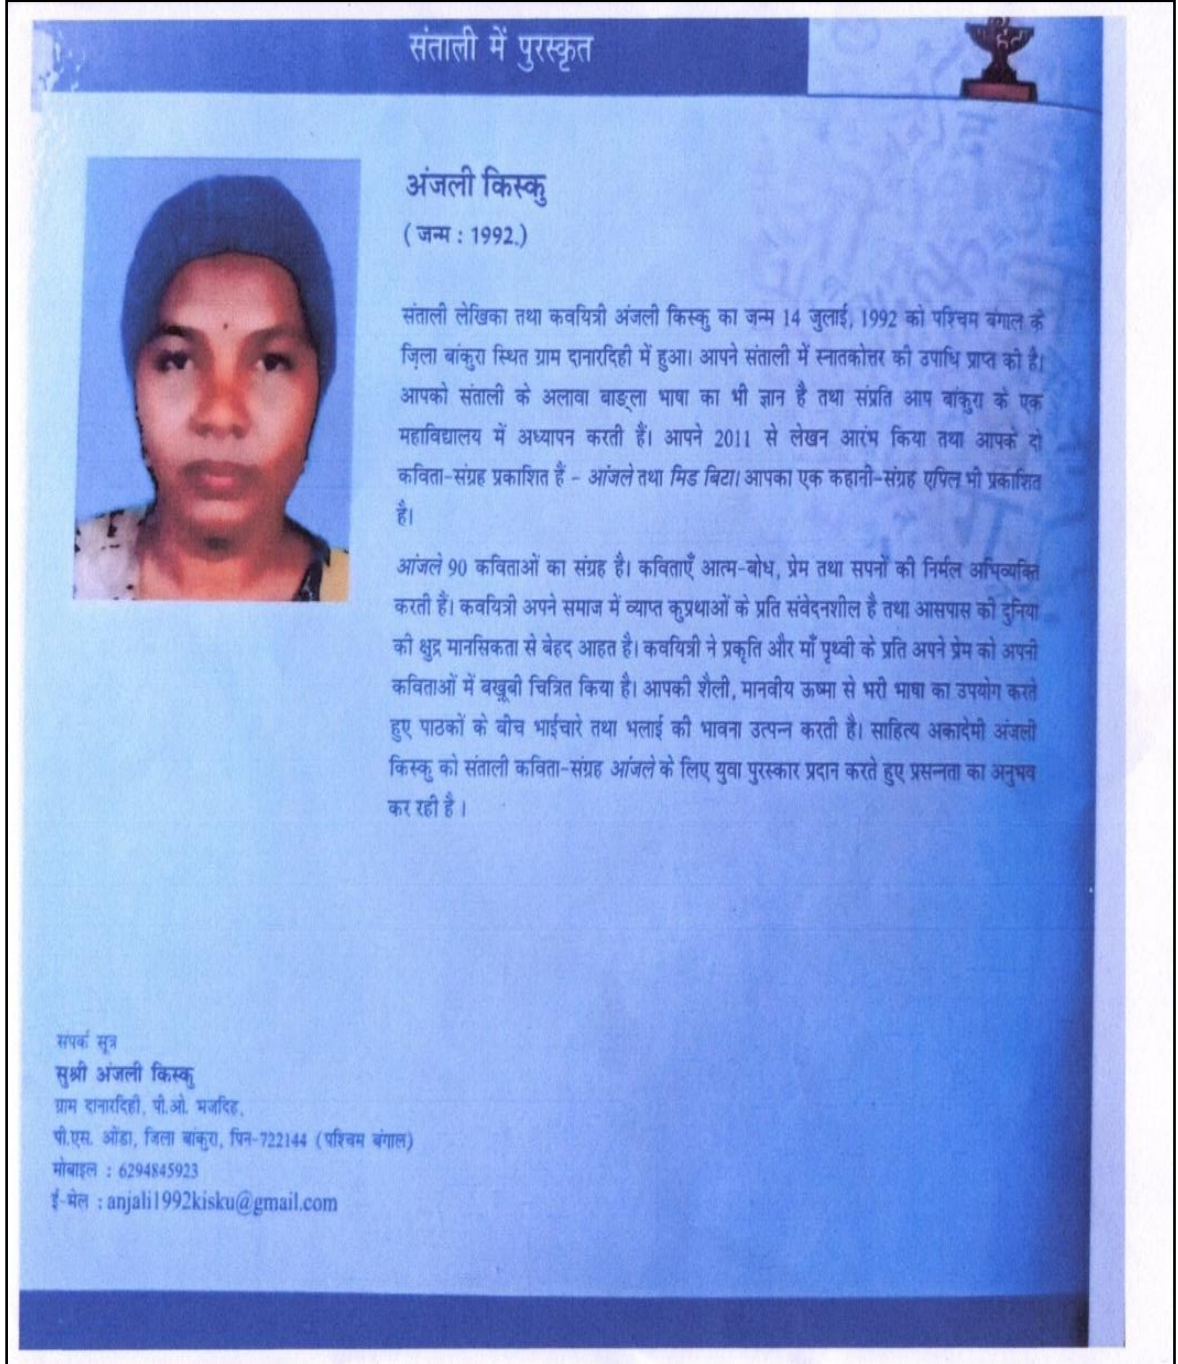 संताली में पुरस्कृत
अंजली किस्कु
( जन्म : 1992.)
संताली लेखिका तथा कवयित्री अंजली किस्कु का जन्म 14 जुलाई, 1992 को पश्चिम बंगाल के
ज़िला बांकुरा स्थित ग्राम दानारदिही में हुआ। आपने संताली में स्नातकोत्तर की उपाधि प्राप्त की है।
आपको संताली के अलावा बाङ्ला भाषा का भी ज्ञान है तथा संप्रति आप बांकुरा के एक
महाविद्यालय में अध्यापन करती हैं। आपने 2011 से लेखन आरंभ किया तथा आपके दो
कविता-संग्रह प्रकाशित हैं - आंजले तथा मिड बिटा। आपका एक कहानी-संग्रह एपिल भी प्रकाशित
है।
आंजले 90 कविताओं का संग्रह है। कविताएँ आत्म-बोध, प्रेम तथा सपनों की निर्मल अभिव्यक्ति
करती हैं। कवयित्री अपने समाज में व्याप्त कुप्रथाओं के प्रति संवेदनशील है तथा आसपास की दुनिया
की क्षुद्र मानसिकता से बेहद आहत है। कवयित्री ने प्रकृति और माँ पृथ्वी के प्रति अपने प्रेम को अपनी
कविताओं में बखूबी चित्रित किया है। आपकी शैली, मानवीय ऊष्मा से भरी भाषा का उपयोग करते
हुए पाठकों के बीच भाईचारे तथा भलाई की भावना उत्पन्न करती है। साहित्य अकादेमी अंजली
किस्कु को संताली कविता-संग्रह आंजले के लिए युवा पुरस्कार प्रदान करते हुए प्रसन्नता का अनुभव
कर रही है ।
संपर्क सूत्र
सुश्री अंजली किस्कु
ग्राम दानारदिही, पी.ओ. मजदिह,
पी.एस. ओंडा, जिला बांकुरा, पिन-722144 (पश्चिम बंगाल)
मोबाइल : 6294845923
ई-मेल : anjali1992kisku@gmail.com